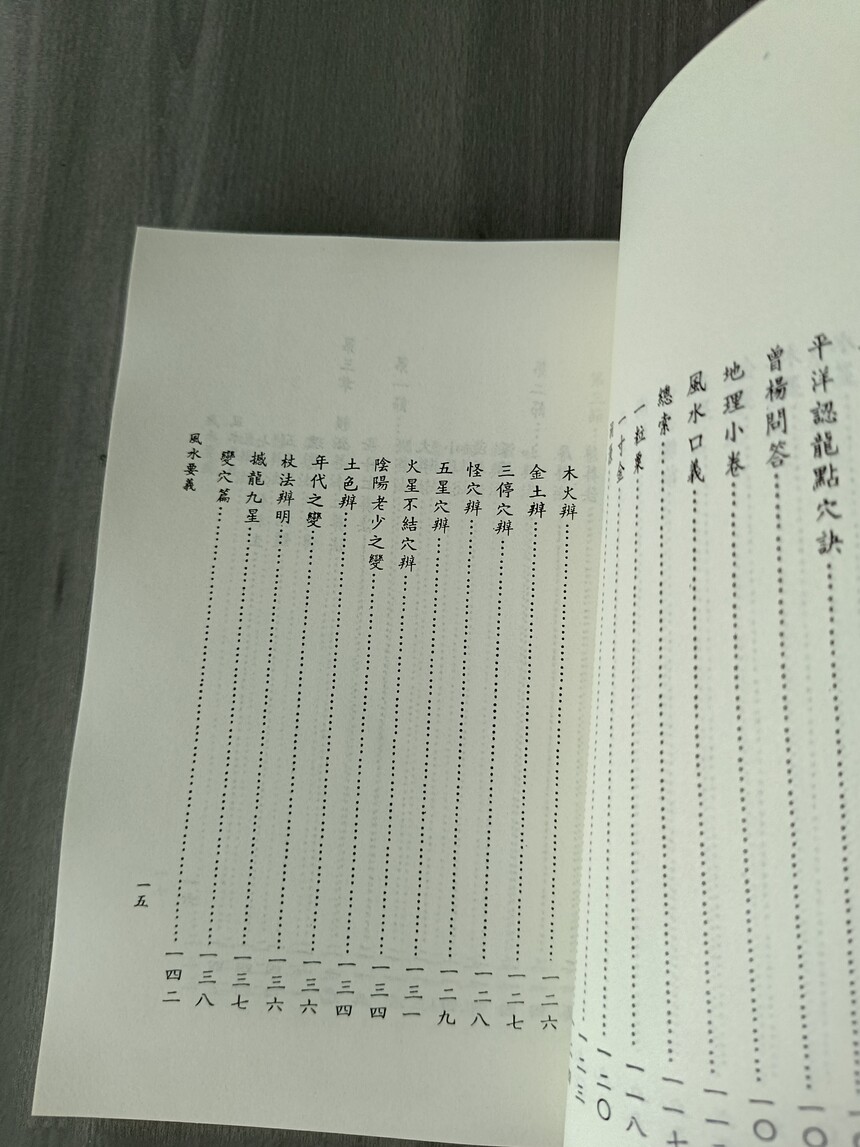 平洋認龍點穴訣
曾楊問答
地理小卷
風水口義
總索……一一七
一粒粟……一一八
一寸金……一二〇
一二三
木火辨……一二六
金土辨……一二七
三停穴辨……一二八
怪穴辨……一二九
五星穴辨……一三一
火星不結穴辨……一三四
陰陽老少之變……一三四
土色辨……一三六
年代之變……一三六
杖法辨明……一三七
撼龍九星……一三八
變穴篇……一四二
風水要義
一五